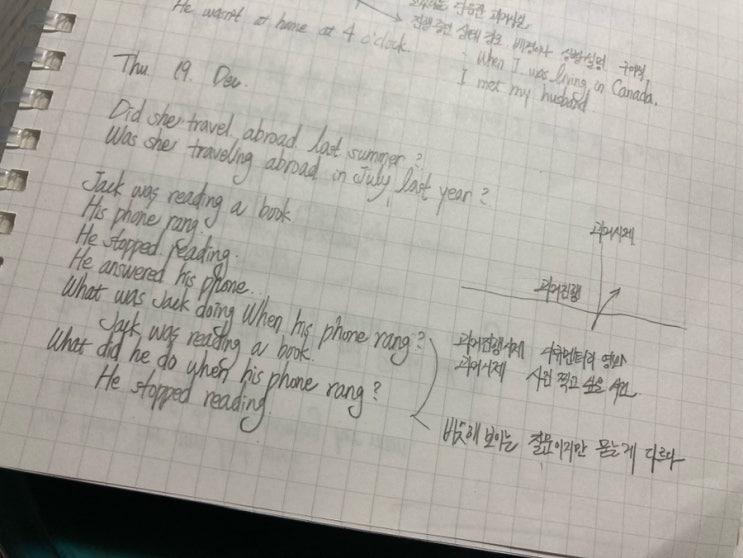 He wasn't at home at 4 o'clock.
진행 중인 상태 강조, 배경이나 상황 설명
When I was living in Canada.
I met my husband
Thu 19. Dec.
Did she travel abroad last summer?
Was she traveling abroad in July, last year?
Jack was reading a book
His phone rang.
He stopped reading.
He answered his phone...
What was Jack doing When his phone rang?
Jack was reading a book.
What did he do when his phone rang?
He stopped reading
과거시제
과거진행
과거진행시제 다큐멘터리 영화
과거시제 사진 찍고 싶은
비슷해 보이는 질문이지만 묻는게 다르다